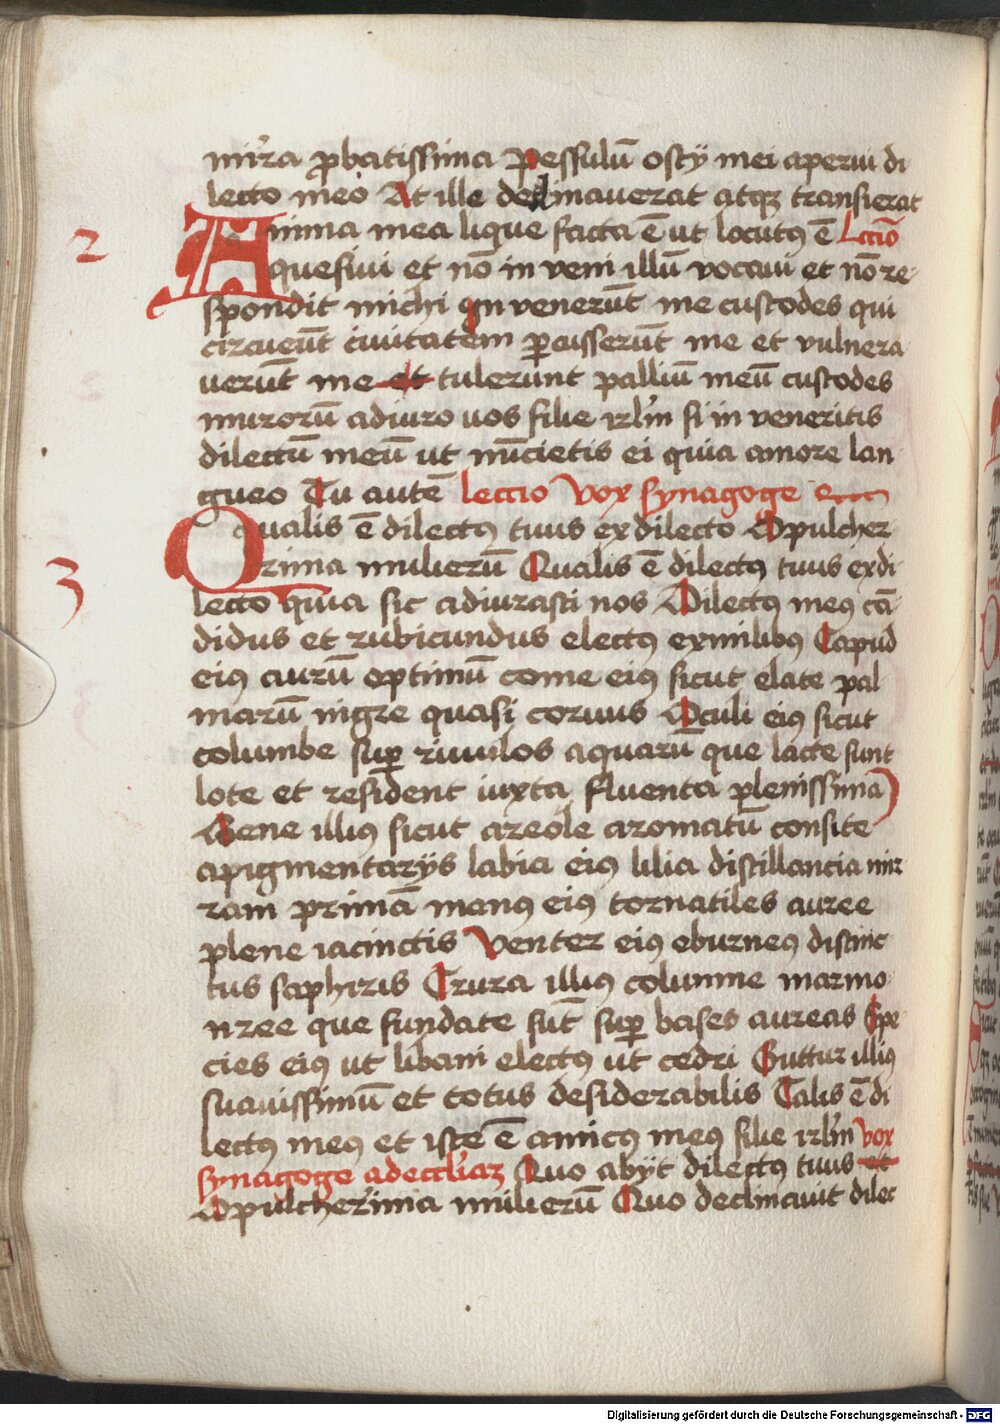 mirra ꝓbatissima Pessulū ostij mei aperui di
lecto meo At ille declinauerat atqꝫ transierat
2 Anima mea lique facta ē ut locutꝯ ē Lectio
quesiui et nō in veni illū vocaui et nō re-
spondit michi In venerūt me custodes qui
circueūt ciuitatem ꝑcusserūt me et vulnera
uerūt me et tulerunt palliū meū custodes
murorū adiuro uos filie irlm si in veneritis
dilectū meū ut nūcietis ei quia amore lan
gueo Tu autē lectio Vox synagoge
3 Qualis ē dilectꝯ tuus ex dilecto O pulcher
rima mulierū Qualis ē dilectꝯ tuus ex di
lecto quia sic adiurasti nos Dilectꝯ meꝯ cā-
didus et rubicundus electꝯ ex milibꝯ Capud
eiꝯ aurū optimū come eiꝯ sicut elate pal
marū nigre quasi coruus Oculi eiꝯ sicut
columbe suꝑ riuulos aquarū que lacte sunt
lote et resident iuxta fluenta plenissima
Gene illiꝯ sicut areole aromatū consite
apigmentarijs labia eiꝯ lilia distillancia mir
ram primā manꝯ eiꝯ tornatiles auree
plene iacinctis Venter eiꝯ eburneꝯ distinc
tus saphiris Crura illiꝯ columne marmo
ree que fundate sūt suꝑ bases aureas Spe
cies eiꝯ ut libani electꝯ ut cedri Guttur illiꝯ
suauissimū et totus desiderabilis Talis ē di
lectꝯ meꝯ et iste ē amicꝯ meꝯ filie irlm vox
synagoge ad eccl'iaz Quo abijt dilectꝯ tuus et
O pulcherima mulierū Quo declinauit dilec
Digitalisierung gefördert durch die Deutsche Forschungsgemeinschaft - DFG